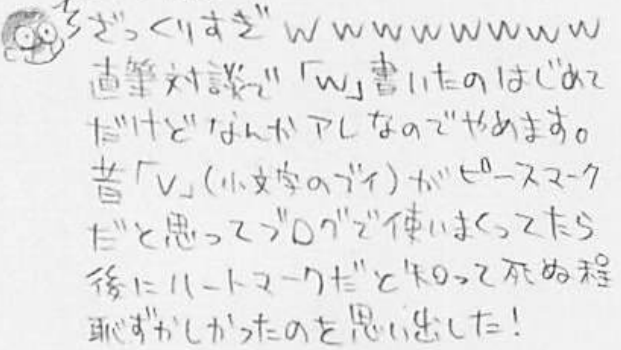 ざっくりすぎwwwwwwwww
直筆対談で「w」書いたのはじめて
だけどなんかアレなのでやめます。
昔「v」(小文字のブイ)がピースマーク
だと思ってブログで使いまくってたら
後にハートマークだと知って死ぬ程
恥ずかしかったのを思い出した!